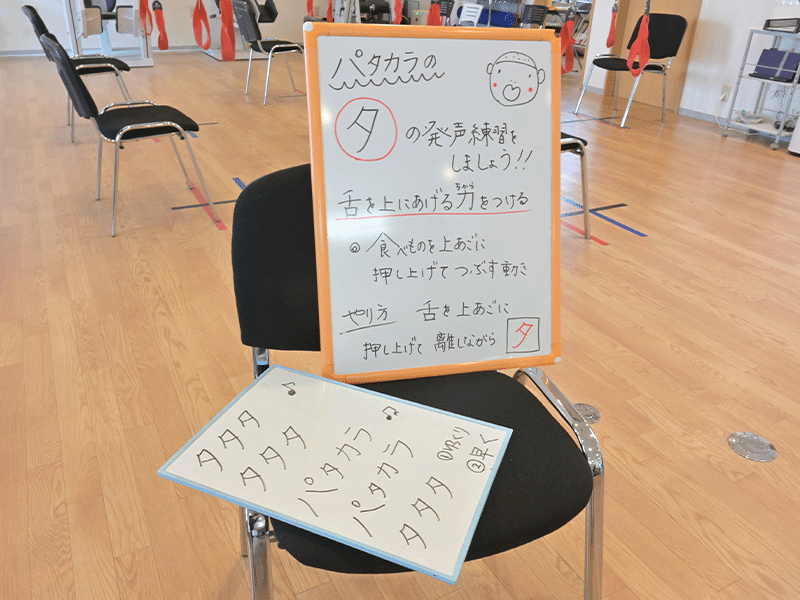 パタカラの
タの発声練習を
しましょう!!
舌を上にあげる力をつける
ちから
◎食べものを上あごに
押し上げてつぶす動き
やり方 舌を上あごに
押し上げて離しながら タ
♪ ♫
タタタ
タタタ
パタカラ
パタカラ
タタタ
①ゆっくり
②早く